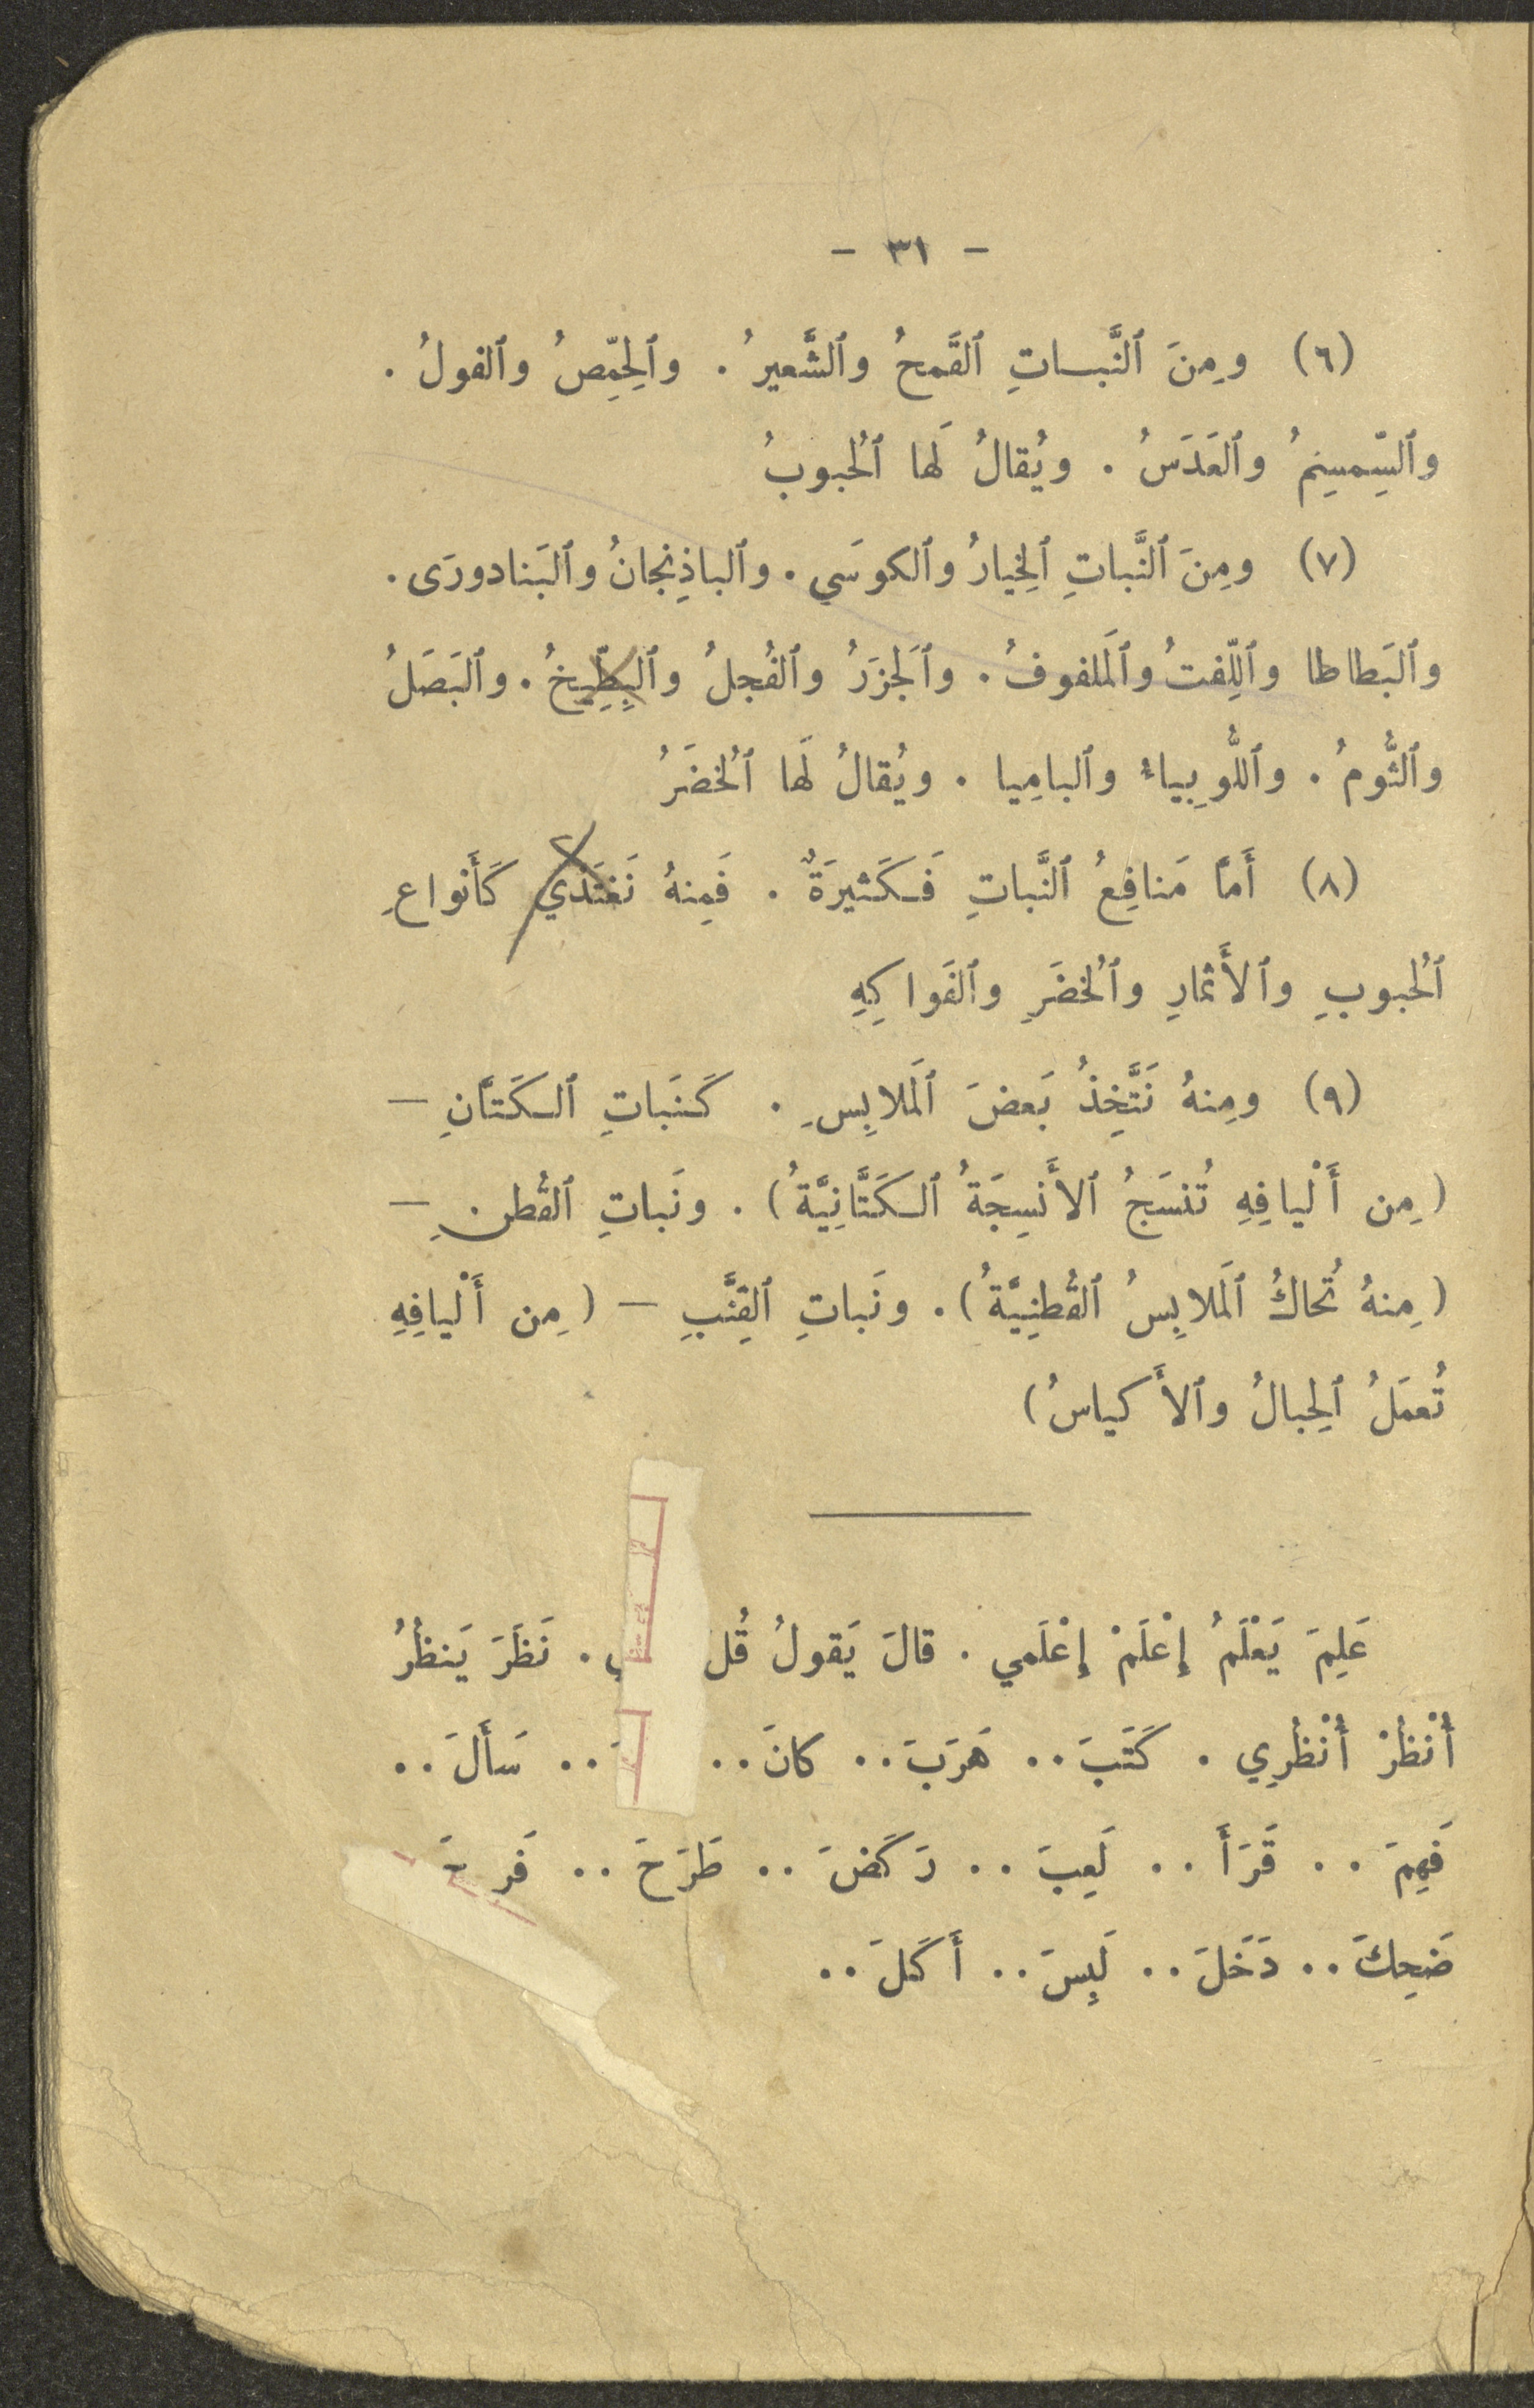 - ٣١ -
(٦) ومِنَ ٱلنَّبـاتِ ٱلقَمحُ وٱلشَّعيرُ . وٱلحِمِّصُ وٱلفولُ .
وٱلسِّمسِمُ وٱلعَدَسُ . ويُقالُ لَها ٱلحُبوبُ
(٧) ومِنَ ٱلنَّباتِ ٱلخِيارُ وٱلكوسَي . وٱلباذِنجانُ وٱلبَنادورَى .
وٱلبَطاطا وٱللِّفتُ وٱلمَلفوفُ . وٱلجَزَرُ وٱلفُجلُ وٱلبِطِّيخُ . وٱلبَصَلُ
وٱلثُّومُ . وٱللُّوبِياءُ وٱلبامِيا . ويُقالُ لَها ٱلخُضَرُ
(٨) أَمَّا مَنافِعُ ٱلنَّباتِ فَـكَثيرَةٌ . فَمِنهُ نَغتَذي كَأَنواعِ
ٱلحُبوبِ وٱلأَثمارِ وٱلخُضَرِ وٱلفَواكِهِ
(٩) ومِنهُ نَتَّخِذُ بَعضَ ٱلمَلابِسِ . كَنَباتِ ٱلـكَتَّانِ —
( مِن أَلْيافِهِ تُنسَجُ ٱلأَنسِجَةُ ٱلـكَتَّانِيَّةُ ) . ونَباتِ ٱلقُطنِ —
( مِنهُ تُحاكُ ٱلمَلابِسُ ٱلقُطنِيَّةُ ) . ونَباتِ ٱلقِنَّبِ — ( مِن أَلْيافِهِ
تُعمَلُ ٱلحِبالُ وٱلأَكياسُ )
عَلِمَ يَعْلَمُ إِعْلَمْ إِعْلَمي . قالَ يَقولُ قُل . نَظَرَ يَنظُرُ
أُنْظُرْ أُنْظُرِي . كَتَبَ .. هَرَبَ .. كانَ .. .. سَأَلَ ..
فَهِمَ .. قَرَأَ .. لَعِبَ .. رَكَضَ .. طَرَحَ ..
ضَحِكَ .. دَخَلَ .. لَبِسَ .. أَكَلَ ..